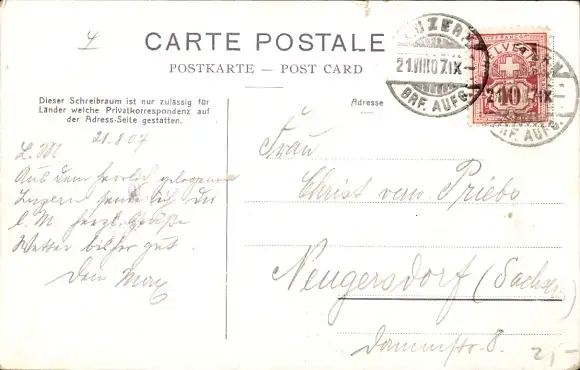 CARTE POSTALE
POSTKARTE — POST CARD
Dieser Schreibraum ist nur zulässig für
Länder welche Privatkorrespondenz auf
der Adress-Seite gestatten.
Adresse
LUZERN
21.VIII.07.IX—
BRF. AUFG.
HELVETIA
10
21.8.07
L. M!
Aus dem herrlich gelegenen
Luzern sende ich dir
l. M herzl. Grüße
Wetter bisher gut.
Dein Max
Frau
Christ vem. Priebs
Neugersdorf (Sachsen)
Dammstr. 8.
2,-